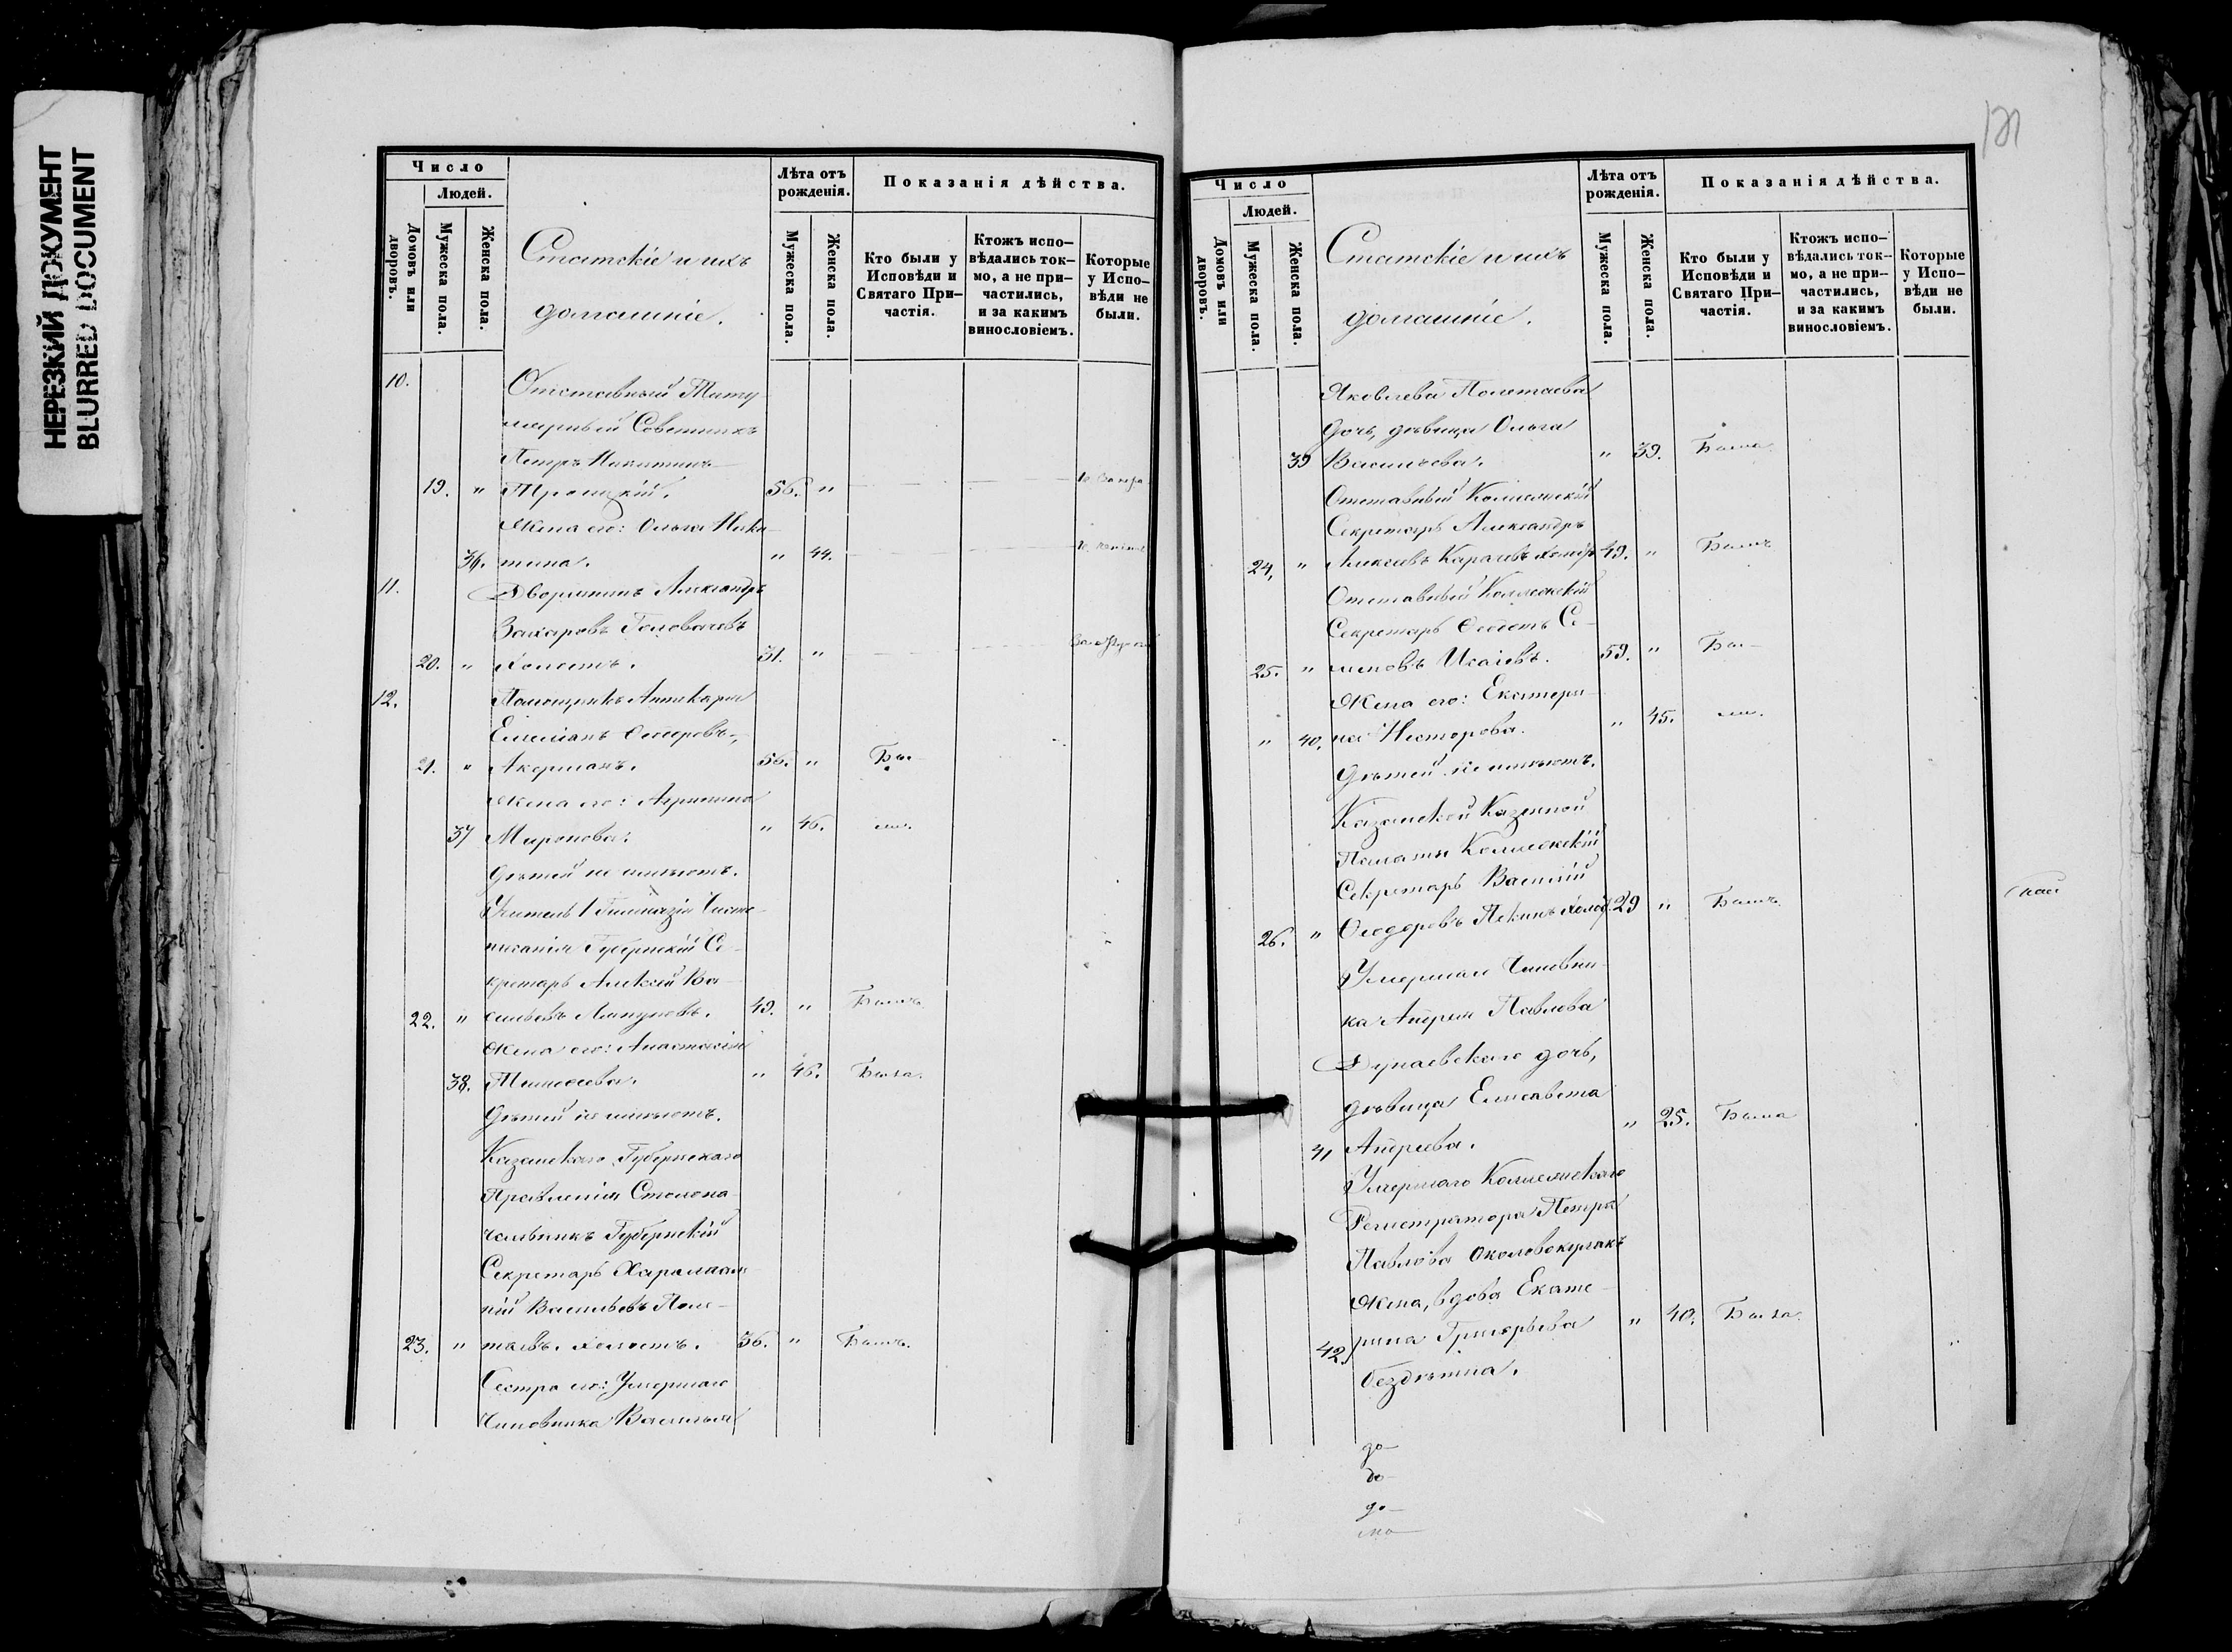 НЕРЕЗКИЙ ДОКУМЕНТ
BLURRED DOCUMENT
Число
Людей.
Домовъ или дворовъ.
Мужеска пола.
Женска пола.
Статскіе и ихъ
домашніе.
Лѣта отъ
рожденія.
Мужеска пола.
Женска пола.
Показанія дѣйства.
Кто были у
Исповѣди и
Святаго При-
частія.
Ктожъ испо-
вѣдались ток-
мо, а не при-
частились,
и за какимъ
винословіемъ.
Которые
у Испо-
вѣди не
были.
10. Отставный Титу
лярный Советникъ
Петръ Никитинъ
19. " Троицкій. 56. "
Жена его: Ольга Ники
36. тина. " 44.
11. Дворянинъ Александръ
Захаровъ Головачевъ
20. " Холостъ. 31. "
12. Помощникъ Аптекаря
Емеліанъ Ѳедоровъ
21. " Акерманъ. 56. " Бы
Жена его: Агрипина
37 Миронова. " 46. ли.
Дѣтей не имѣютъ.
Учитель 1 Гимназіи Чисто
писанія Губернскій Се-
кретарь Алексей Ва-
22. " сильевъ Ляпуновъ. 49. " Былъ
Жена его: Анастасія
38. Тимоѳеева. " 46. Была.
Дѣтей не имѣютъ.
Казанскаго Губернскаго
Правленія Столона-
чальникъ Губернскій
Секретарь Харалам
пій Васильевъ Поле-
23. " таевъ. холостъ. 36. " Былъ.
Сестра его: Умершаго
Чиновника Василья
Число
Людей.
Домовъ или дворовъ.
Мужеска пола.
Женска пола.
Статскіе и ихъ
домашніе.
Лѣта отъ
рожденія.
Мужеска пола.
Женска пола.
Показанія дѣйства.
Кто были у
Исповѣди и
Святаго При-
частія.
Ктожъ испо-
вѣдались ток-
мо, а не при-
частились,
и за какимъ
винословіемъ.
Которые
у Испо-
вѣди не
были.
Яковлева Полетаева
дочь, дѣвица Ольга
39 Васильева. " 39. Была.
Отставный Коллежскій
Секретарь Александръ
24. " Алексеевъ 49. " Былъ
Отставный Коллежскій
Секретарь Ѳедотъ Се-
25. " меновъ Исаіевъ. 59. " Бы-
Жена его: Екатери-
" 40. на Нестерова. " 45. ли.
Дѣтей не имѣютъ.
Казанской Казенной
Палаты Коллежскій
Секретарь Василій
26. " Ѳеодоровъ 29 " Былъ.
Умершаго Чиновни-
ка Андрея Павлова
Дунаевскаго дочь,
дѣвица Елисавета
41 Андреева. " 25. Была
Умершаго Коллежскаго
Регистратора Петра
Павлова
Жена, вдова Екате-
42. рина Григорьева " 40. Была.
бездѣтна.
до-
до-